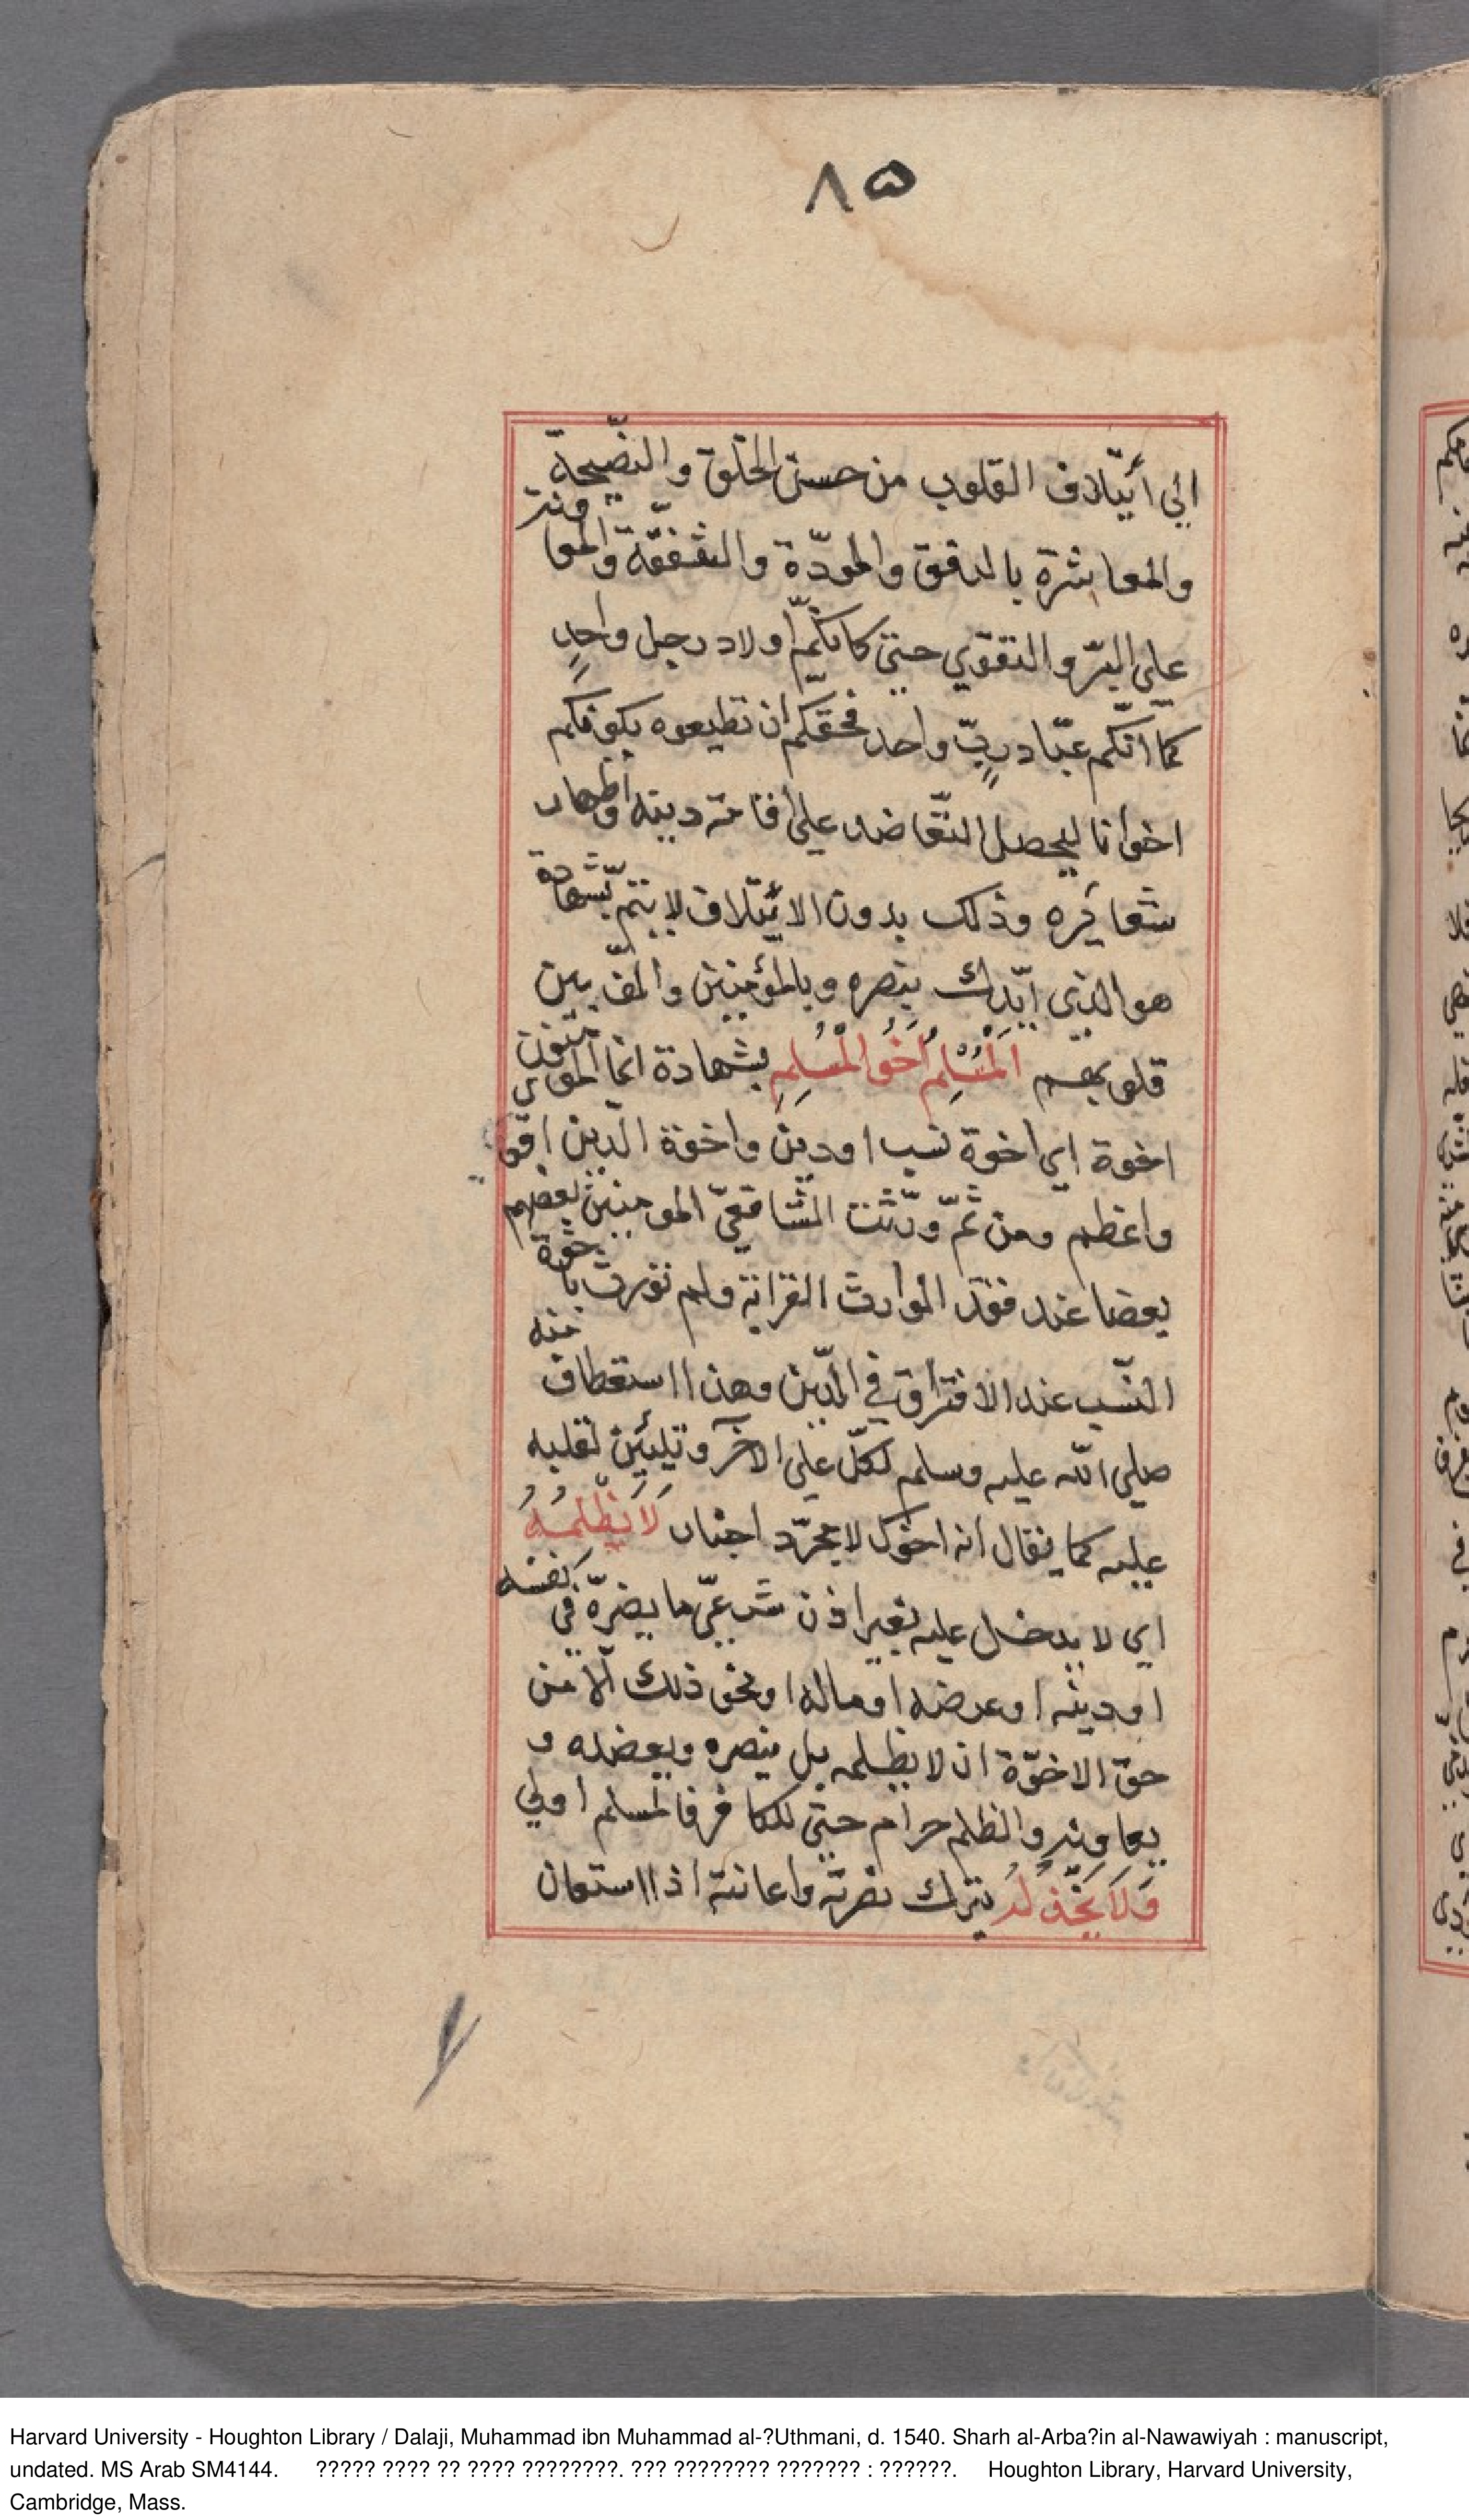 ٨٥
الي أيتلاف القلوب من حسن الخلق والنصّيحة
والمعاشرة بالرفق والمودّة والشفقة والمعاونة
علي البرّ والتقوي حتى كانكّم اولاد رجل واحدٍ
كما انّكم عبّاد ربٍّ واحد فحقّكم ان تطيعوه بكونكم
اخوانا ليحصل التّعاضد علي اقامة دينه واظهار
شعائره وذلك بدون الايتلاف لا يتم بشهادة
هو الذي ايّدك بنصره وبالمؤمنين والّف بين
قلوبهم اَلْمُسْلِمُ اَخُو الْمُسْلِمِ بشهادة انما المومنون
اخوة اي اخوة نسب او دين واخوة الدّين اقوي
واعظم ومن ثمّ ورّثت الشافعيّ المومنين بعضهم
بعضا عند فقد الموارث القرابة ولم تورث باخوة
النّسب عند الافتراق في الدّين وهذا استعطاف منه
صلي الله عليه وسلم لكلّ علي الآخر وتليين لقلبه
عليه كما يقال انه اخوك لا مجرّد اخبار لَا يَظْلِمُهُ
اي لا يدخل عليه بغير اذن شرعيّ ما يضرّه في نفسه
او دينه او عرضه او ماله او نحو ذلك الا من
حق الاخوّة ان لا يظلمه بل ينصره ويعضده و
يعاونه والظلم حرام حتى للكافر فالمسلم اولي
وَلَا يَخْذُلُهُ بترك نصرته واعانته اذا استعان
Harvard University - Houghton Library / Dalaji, Muhammad ibn Muhammad al-?Uthmani, d. 1540. Sharh al-Arba?in al-Nawawiyah : manuscript,
undated. MS Arab SM4144. ????? ???? ?? ???? ????????. ??? ???????? ??????? : ??????. Houghton Library, Harvard University,
Cambridge, Mass.